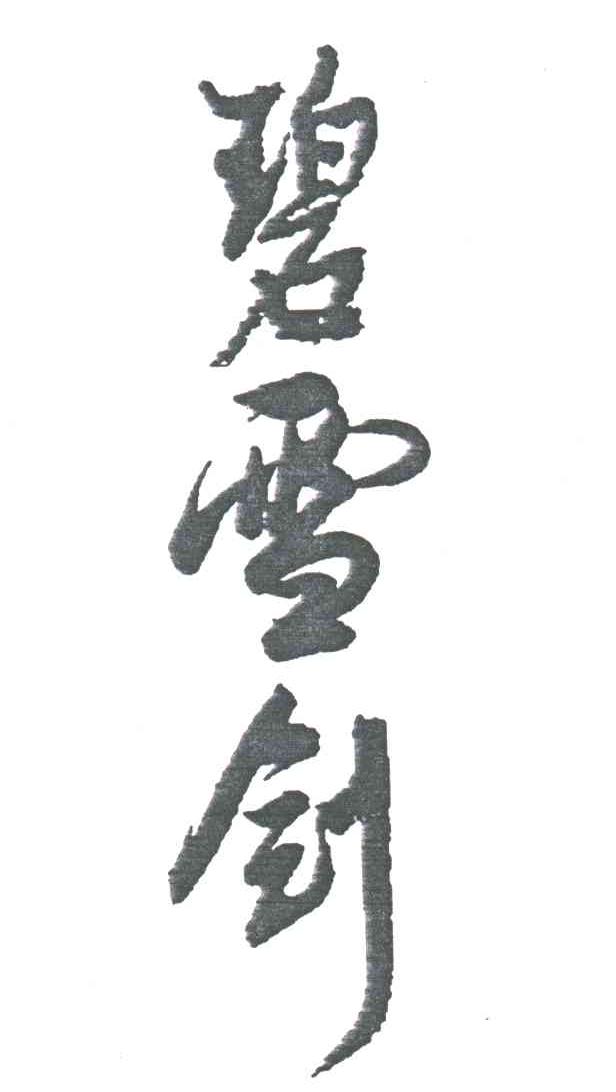 碧雪剑